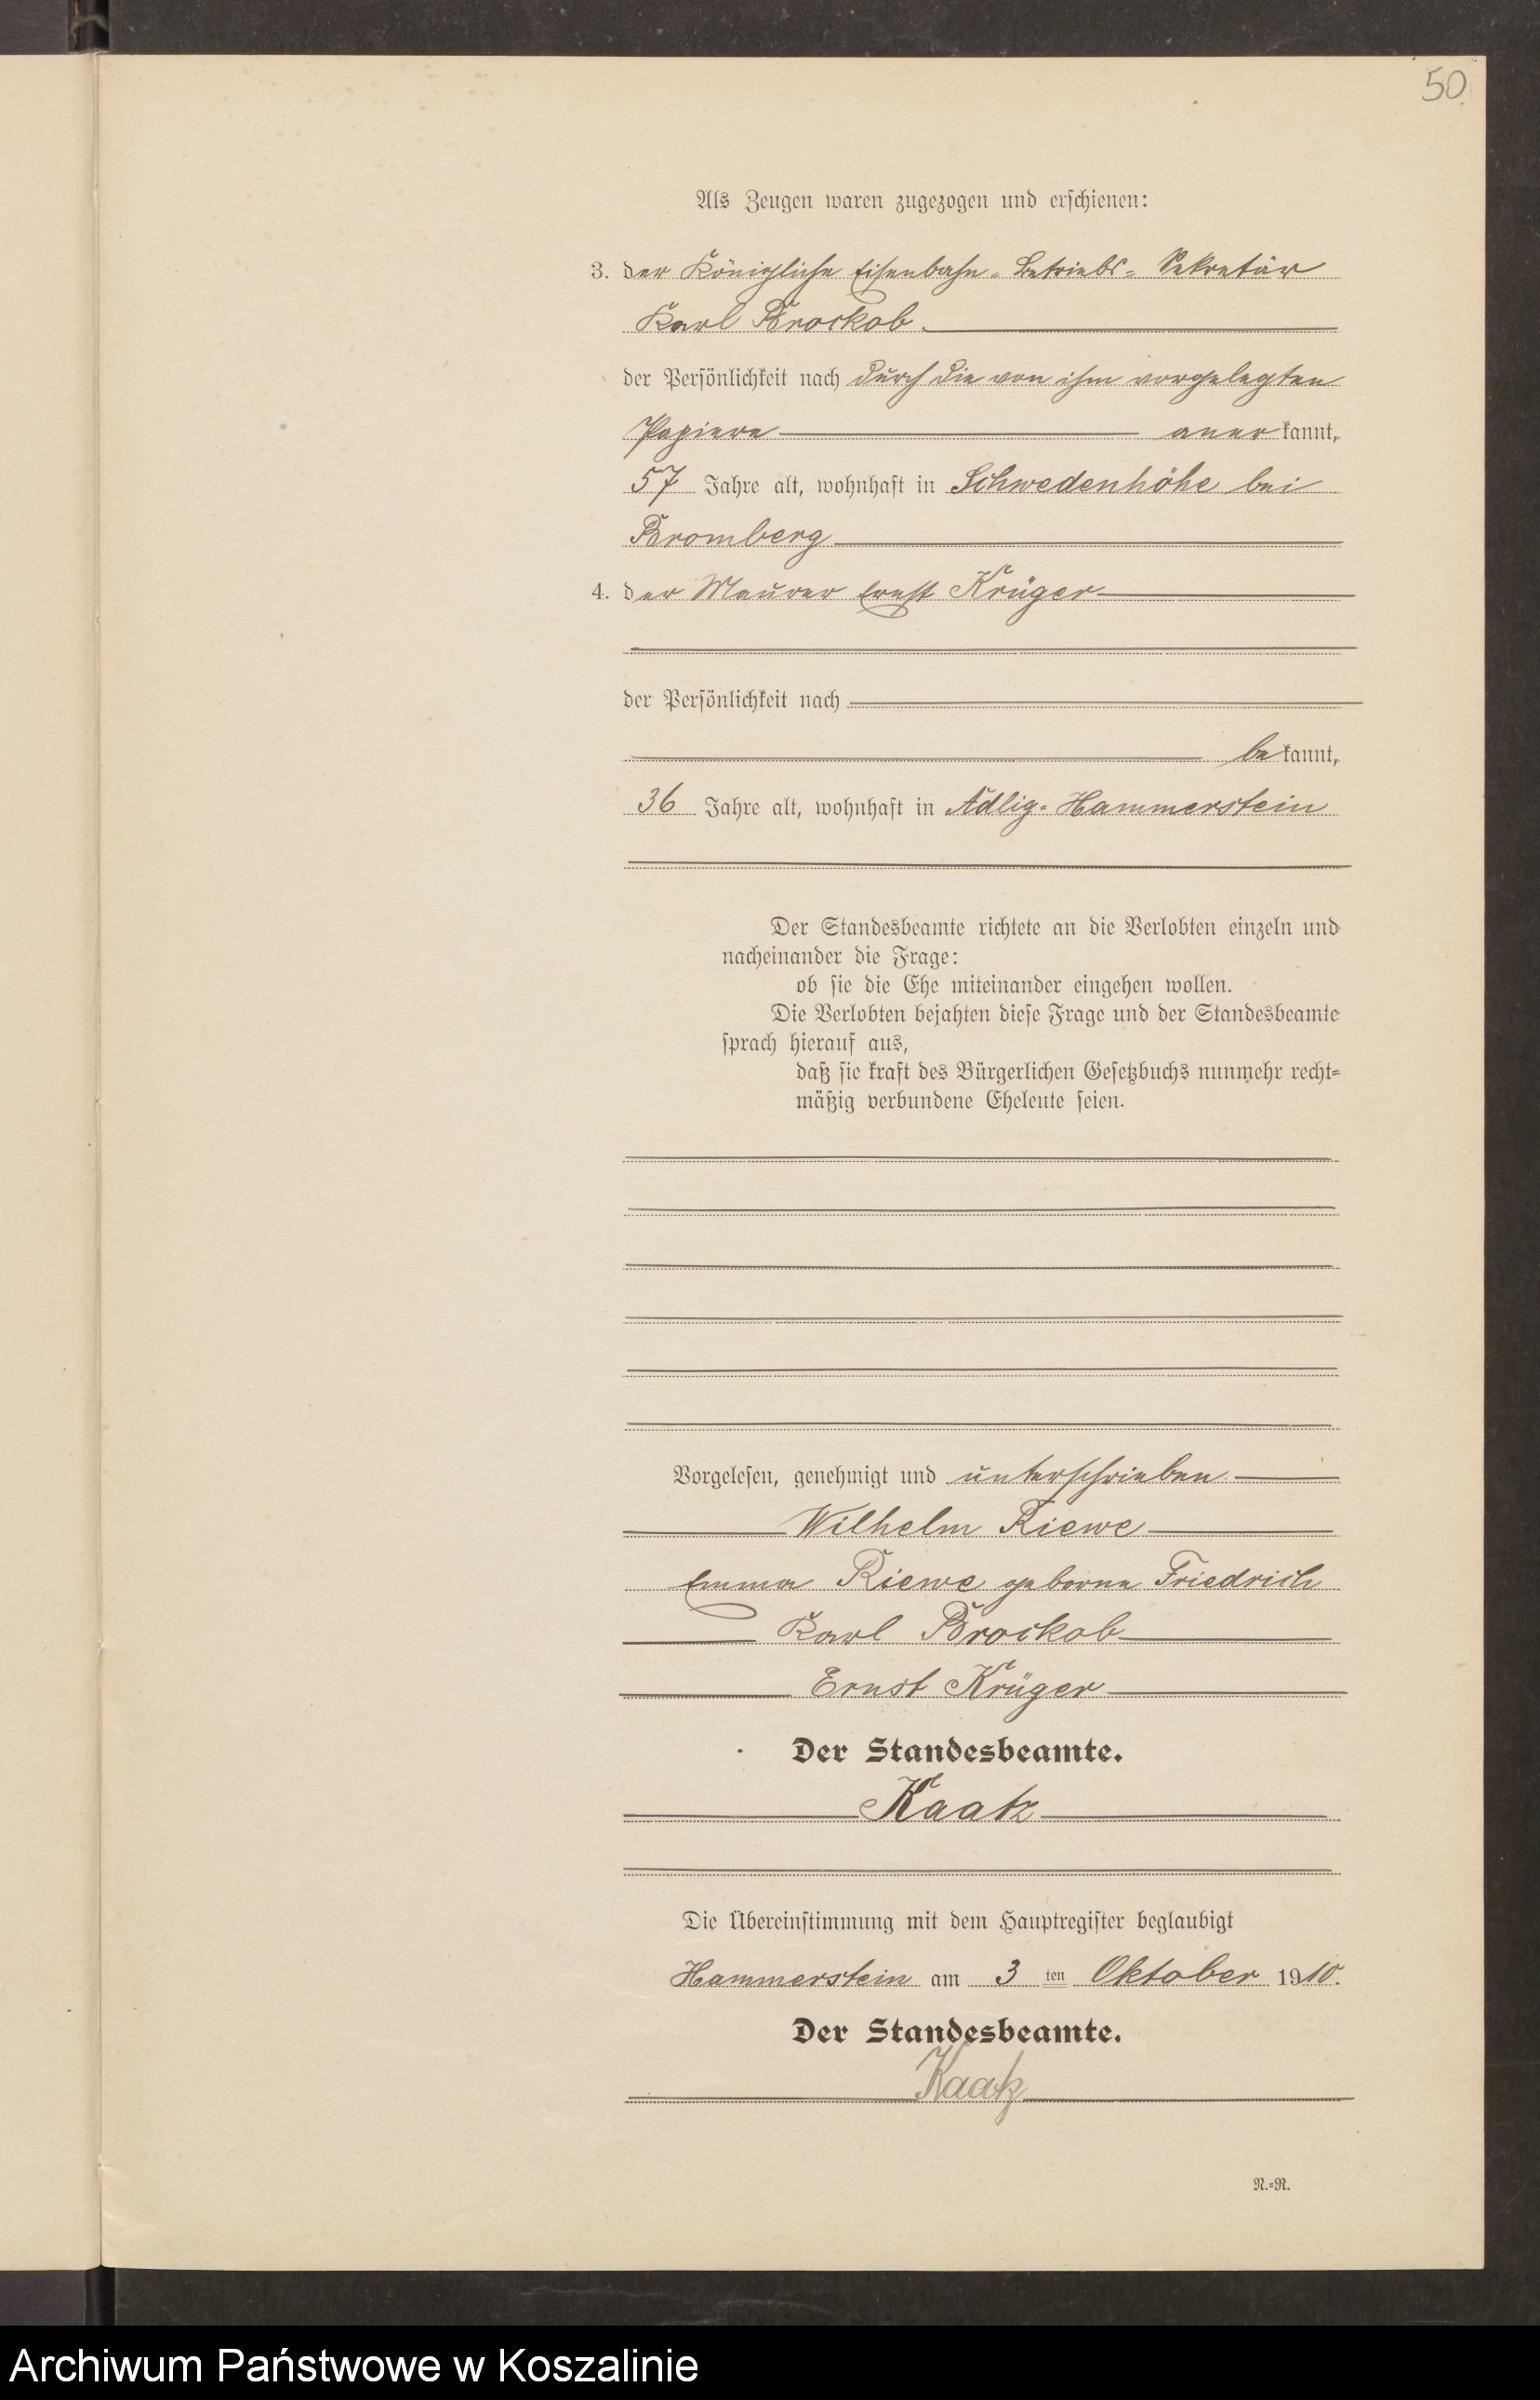 50.
Als Zeugen waren zugezogen und erschienen:
3. der Königliche Eisenbahn-Betriebs-Sekretär
Karl Brockob.
der Persönlichkeit nach durch die von ihm vorgelegten
Papiere anerkannt,
57 Jahre alt, wohnhaft in Schwedenhöhe bei
Bromberg
4. der Maurer Ernst Krüger
der Persönlichkeit nach
bekannt,
36 Jahre alt, wohnhaft in Adlig-Hammerstein
Der Standesbeamte richtete an die Verlobten einzeln und
nacheinander die Frage:
ob sie die Ehe miteinander eingehen wollen.
Die Verlobten bejahten diese Frage und der Standesbeamte
sprach hierauf aus,
daß sie kraft des Bürgerlichen Gesetzbuchs nunmehr recht=
mäßig verbundene Eheleute seien.
Vorgelesen, genehmigt und unterschrieben
Wilhelm Riewe
Emma Riewe geborne Friedrich
Karl Brockob
Ernst Krüger
Der Standesbeamte.
Kaatz
Die Übereinstimmung mit dem Hauptregister beglaubigt
Hammerstein am 3 ten Oktober 1910.
Der Standesbeamte.
Kaatz
N.=R.
Archiwum Państwowe w Koszalinie